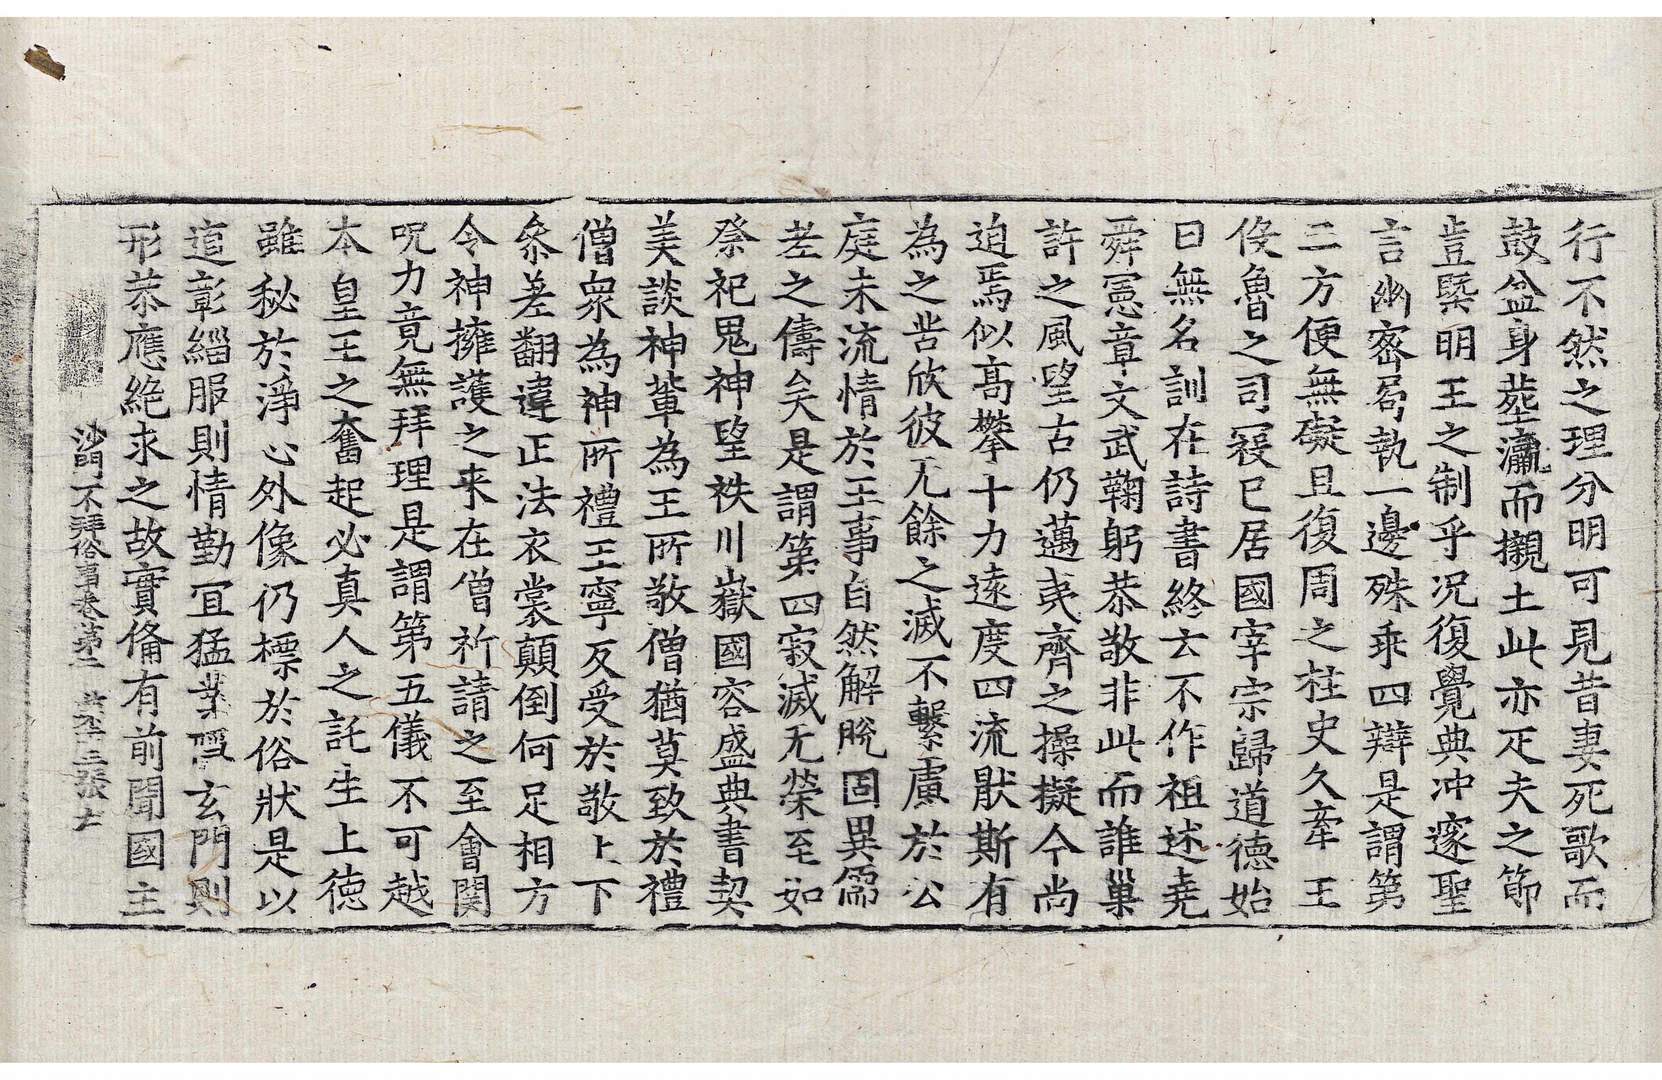 行不然之理分明可見昔妻死歌而
鼓盆身葬瀛而襯土此亦疋夫之節
豈槩明王之制乎况復覺典冲邃聖
言幽密局執一邊殊乖四辯是謂第
二方便無礙且復周之柱史久牽王
役魯之司寇已居國宰宗歸道德始
曰無名訓在詩書終云不作祖述堯
舜憲章文武鞠躬恭敬非此而誰巢
許之風望古仍邁夷齊之操擬今尚
迫焉似高攀十力遠度四流厭斯有
為之苦欣彼无餘之滅不繫慮於公
庭未流情於王事自然解脫固異儒
者之儔矣是謂第四寂滅无榮至如
祭祀鬼神望袟川嶽國容盛典書契
美談神輩為王所敬僧猶莫致於禮
僧衆為神所禮王寧反受於敬上下
叅差翻違正法衣裳顛倒何足相方
令神擁護之来在僧祈請之至會開
呪力竟無拜理是謂第五儀不可越
本皇王之奮起必真人之託生上德
雖秘於淨心外像仍標於俗狀是以
道彰緇服則情勤宜猛業隱玄門則
形恭應絶求之故實俻有前聞國主
沙門不拜俗事卷第二 第三張 士